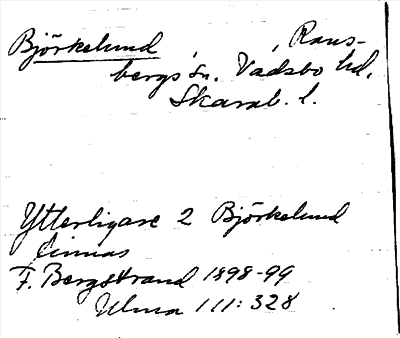 Björkelund, , Rans-
bergs sn. Vadsbo hd.
Skarab. l.
Ytterligare 2 Björkelund
finnas
F. Bergstrand 1898-99
Ulma 111:328